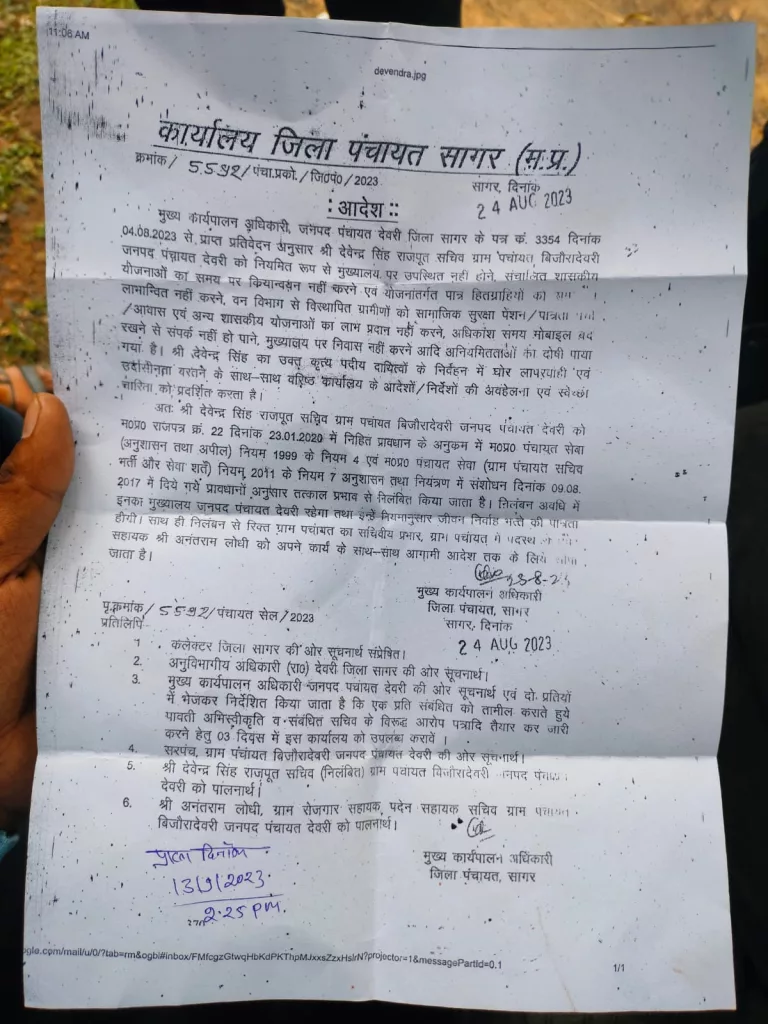 11:06 AM
devendra.jpg
कार्यालय जिला पंचायत सागर (म.प्र.)
क्रमांक/ 5592/पंचा.प्रको./जि0पं0/2023
सागर, दिनांक
24 AUG 2023
: आदेश ::
मुख्य कार्यपालन अधिकारी, जनपद पंचायत देवरी जिला सागर के पत्र कं. 3354 दिनांक
04.08.2023 से प्राप्त प्रतिवेदन अनुसार श्री देवेन्द्र सिंह राजपूत सचिव ग्राम पंचायत बिजौरादेवरी
जनपद पंचायत देवरी को नियमित रूप से मुख्यालय पर उपस्थित नही होने, संचालित शासकीय
योजनाओं का समय पर कियान्वयन नहीं करने एवं योजनांतर्गत पात्र हितग्राहियों को
लाभान्वित नहीं करने, वन विभाग से विस्थापित ग्रामीणों को सामाजिक सुरक्षा पेंशन/पात्रता
/आवास एवं अन्य शासकीय योजनाओं का लाभ प्रदान नहीं करने, अधिकांश समय मोबाइल बंद
रखने से संपर्क नहीं हो पाने, मुख्यालय पर निवास नहीं करने आदि अनियमितताओं का दोषी पाया
गया है। श्री देवेन्द्र सिंह का उक्त कृत्य पदीय दायित्वों के निर्वहन में घोर लापरवाही एवं
उदासीनता बरतने के साथ-साथ वरिष्ठ कार्यालय के आदेशों/निर्देशों की अवहेलना एवं स्वेच्छा
चारिता को प्रदर्शित करता है।
अतः श्री देवेन्द्र सिंह राजपूत सचिव ग्राम पंचायत बिजौरादेवरी जनपद पंचायत देवरी को
म0प्र0 राजपत्र क्रं. 22 दिनांक 23.01.2020 में निहित प्रावधान के अनुकम में म0प्र0 पंचायत सेवा
(अनुशासन तथा अपील) नियम 1999 के नियम 4 एवं म0प्र0 पंचायत सेवा (ग्राम पंचायत सचिव
भर्ती और सेवा शर्तें) नियम 2011 के नियम 7 अनुशासन तथा नियंत्रण में संशोधन दिनांक 09.08.
2017 में दिये गये प्रावधानों अनुसार तत्काल प्रभाव से निलंबित किया जाता है। निलंबन अवधि में
इनका मुख्यालय जनपद पंचायत देवरी रहेगा तथा इन्हें नियमानुसार जीवन निर्वाह भत्ते की पात्रता
होगी। साथ ही निलंबन से रिक्त ग्राम पंचायत का सचिवीय प्रभार, ग्राम पंचायत में पदस्थ
सहायक श्री अनंतराम लोधी को अपने कार्य के साथ-साथ आगामी आदेश तक के लिये सौंपा
जाता है।
23-8-23
मुख्य कार्यपालन अधिकारी
जिला पंचायत, सागर
पृ.क्रमांक/ 5592/पंचायत सेल/2023
सागर, दिनांक
24 AUG 2023
प्रतिलिपि-
1 कलेक्टर जिला सागर की ओर सूचनार्थ संप्रेषित।
2. अनुविभागीय अधिकारी (रा0) देवरी जिला सागर की ओर सूचनार्थ।
3. मुख्य कार्यपालन अधिकारी जनपद पंचायत देवरी की ओर सूचनार्थ एवं दो प्रतियों
में भेजकर निर्देशित किया जाता है कि एक प्रति संबंधित को तामील कराते हुये
पावती अभिस्वीकृति व संबंधित सचिव के विरूद्ध आरोप पत्रादि तैयार कर जारी
करने हेतु 03 दिवस में इस कार्यालय को उपलब्ध करावें ।
4. सरपंच, ग्राम पंचायत बिजौरादेवरी जनपद पंचायत देवरी की ओर सूचनार्थ।
5. श्री देवेन्द्र सिंह राजपूत सचिव (निलंबित) ग्राम पंचायत बिजौरादेवरी जनपद पंचायत
देवरी को पालनार्थ।
6. श्री अनंतराम लोधी, ग्राम रोजगार सहायक, पदेन सहायक सचिव ग्राम पंचायत
बिजौरादेवरी जनपद पंचायत देवरी को पालनार्थ।
मुख्य कार्यपालन अधिकारी
जिला पंचायत, सागर
प्राप्त दिनांक
13/9/2023.
2:25 PM.
ogle.com/mail/u/0/?tab=rm&ogbl#inbox/FMfcgzGtwqHbKdPKThpMJxxsZzxHslrN?projector=1&messagePartId=0.1
1/1